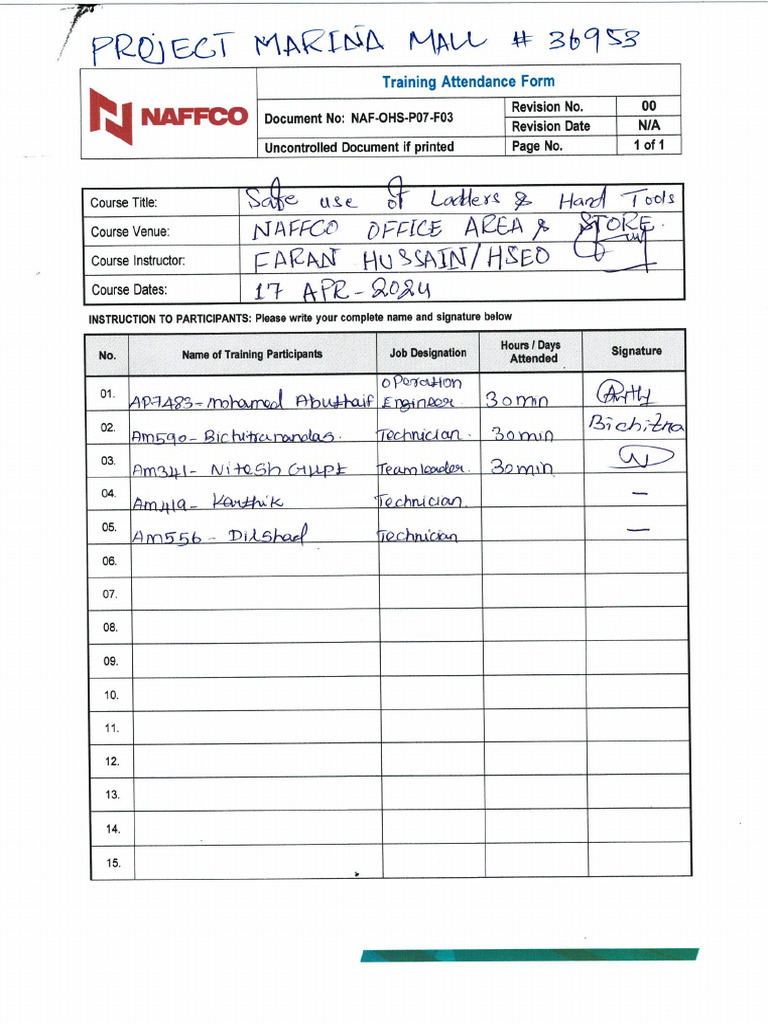 PROJECT MARINA MALL # 36953
NAFFCO
Training Attendance Form
Document No: NAF-OHS-P07-F03
Revision No. 00
Revision Date N/A
Uncontrolled Document if printed
Page No. 1 of 1
Course Title: Safe use of Ladders & Hand Tools
Course Venue: NAFFCO OFFICE AREA & STORE.
Course Instructor: FARAN HUSSAIN/HSEO
Course Dates: 17 APR-2024
INSTRUCTION TO PARTICIPANTS: Please write your complete name and signature below
No. Name of Training Participants Job Designation Hours / Days Attended Signature
01. AP7483-mohamed Abuthaif Operation Engineer 30min
02. Am590-Bichitranandas. Technician. 30min Bichitra
03. Am341-Nitesh Gupt Teamleader. 30min
04. Am419-Karthik Technician. –
05. Am556-Dilshad Technician –
06.
07.
08.
09.
10.
11.
12.
13.
14.
15.